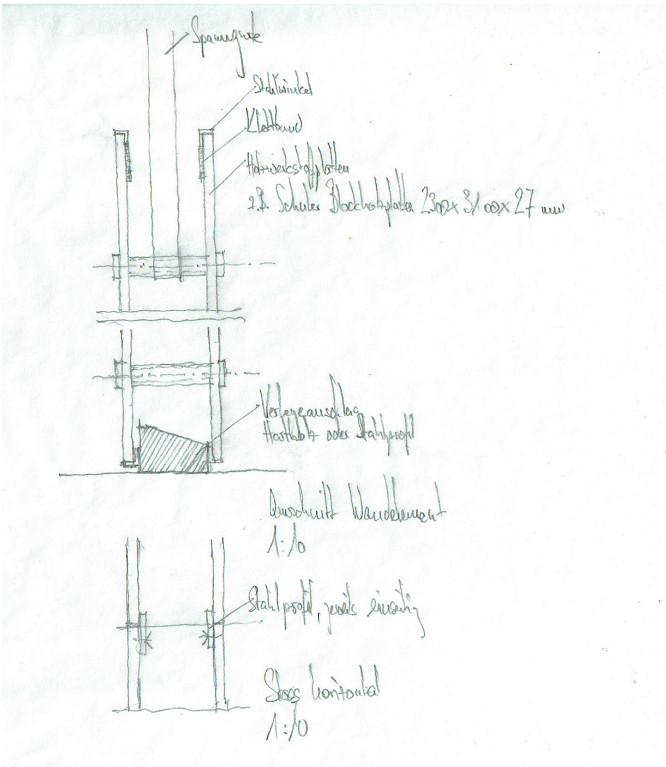 Spanngurte
Stahlwinkel
Klettband
Holzwerkstoffplatten
z.B. Schuler Blockholzplatten 2500 x 3100 x 27 mm
Hartholz oder Stahlprofil
Querschnitt Wandelement
1:10
Stahlprofil, jeweils einseitig
Stoss horizontal
1:10